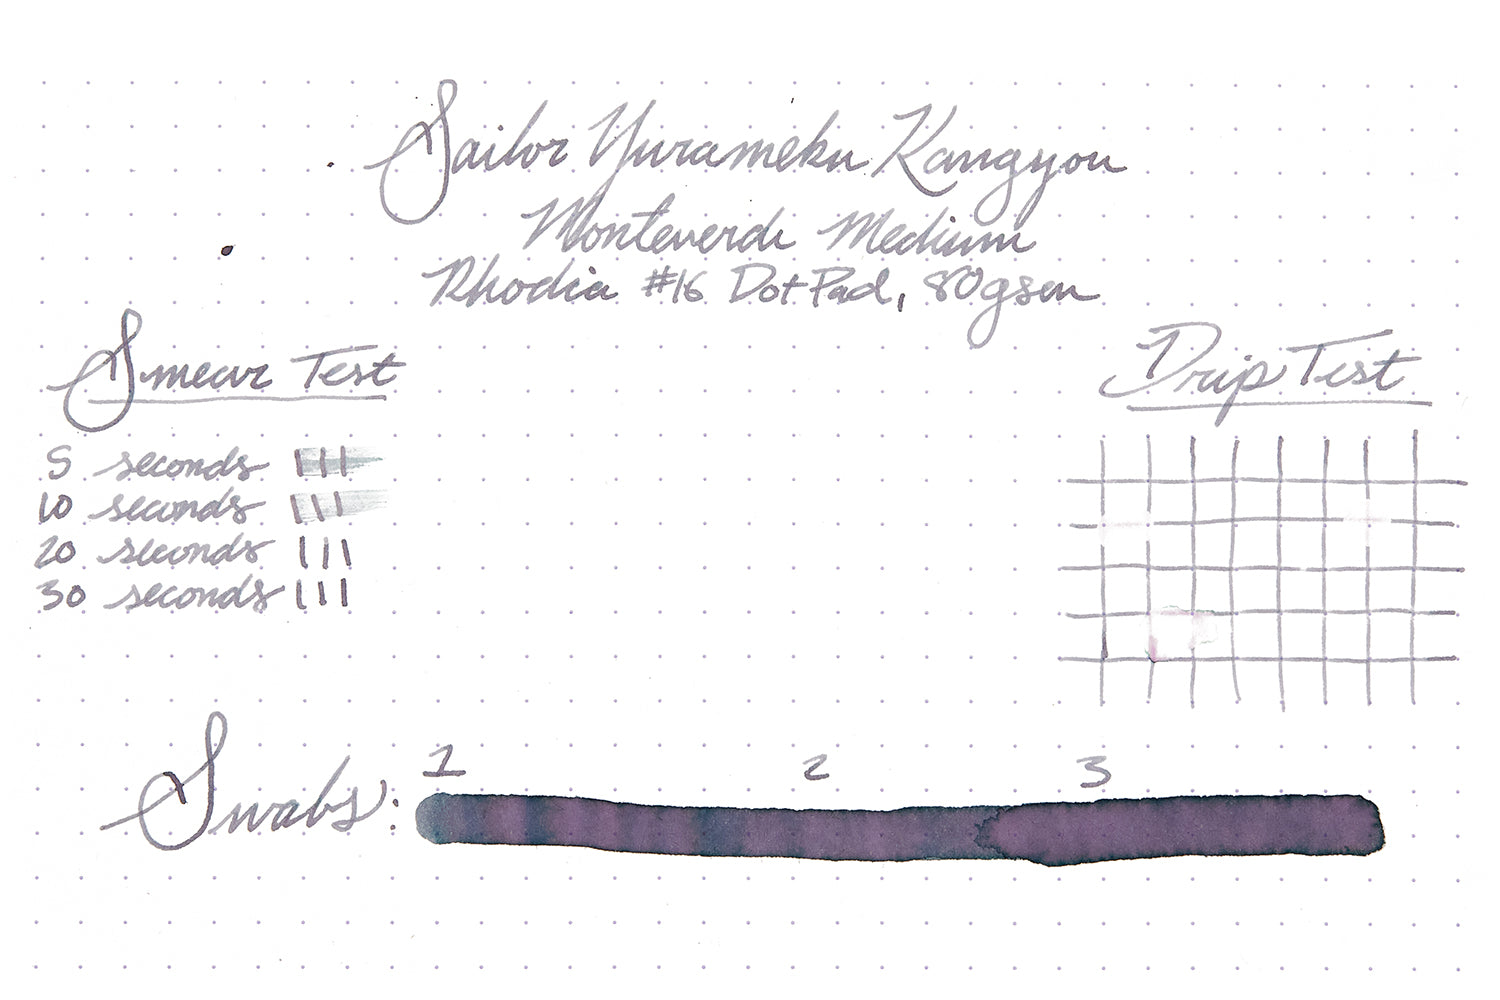 Sailor Yurameku Kangyou
Monteverde Medium
Rhodia #16 Dot Pad, 80gsm
Smear Test
5 seconds
10 seconds
20 seconds
30 seconds
Drip Test
Swabs:
1 2 3